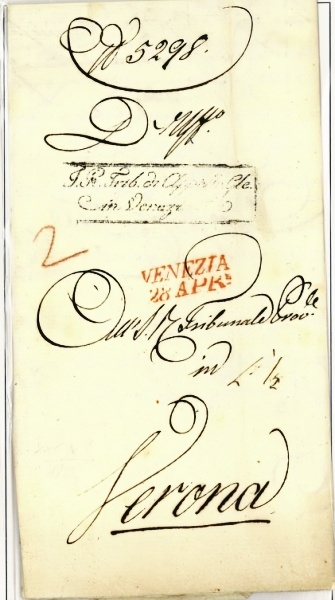 N 5298.
D'Uff.º
I. R. Trib. di App. Gle.
in Venezia
2
VENEZIA
28 APR.
All' I. R. Tribunale Prov.le
in
1/2
Verona